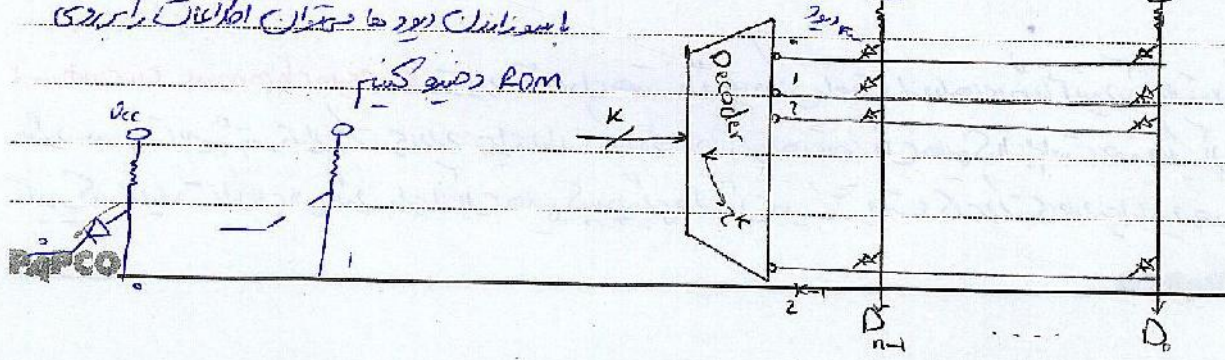 با سوزاندن دیود ها میتوان اطلاعات را بر روی
ROM ذخیره کنیم
دیود
Vcc
K
Decoder
K → 2^K
0
1
2
2^K-1
0
0
1
D n-1
.....
D0
PAPCO